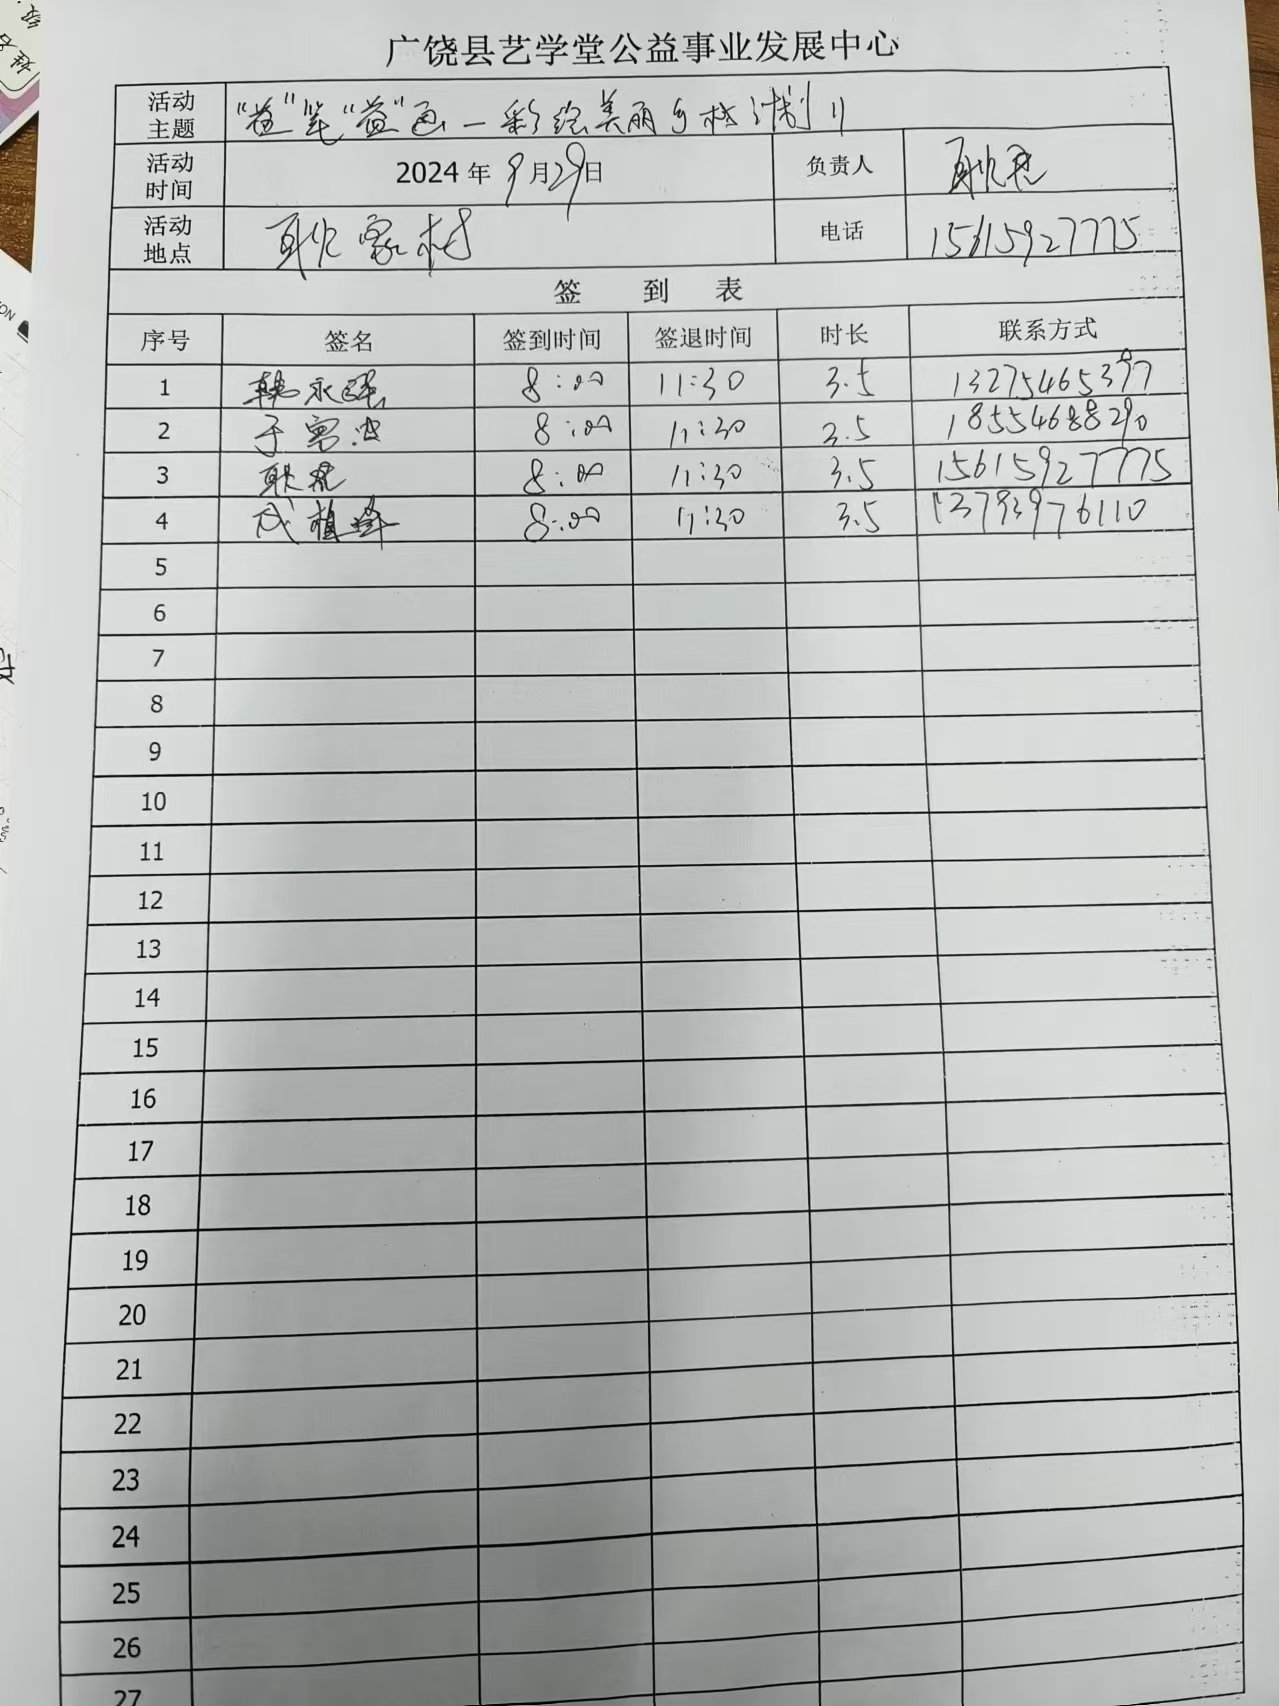 广饶县艺学堂公益事业发展中心
活动主题 "益"笔"益"画—彩绘美丽乡村计划
活动时间 2024年9月29日 负责人 耿
活动地点 耿家村 电话 15615927775
签到表
序号 签名 签到时间 签退时间 时长 联系方式
1 韩永 8:00 11:30 3.5
2 于 8:00 11:30 3.5 18554688290
3 耿 8:00 11:30 3.5 15615927775
4 成植峰 8:00 11:30 3.5 13793976110
5
6
7
8
9
10
11
12
13
14
15
16
17
18
19
20
21
22
23
24
25
26
27